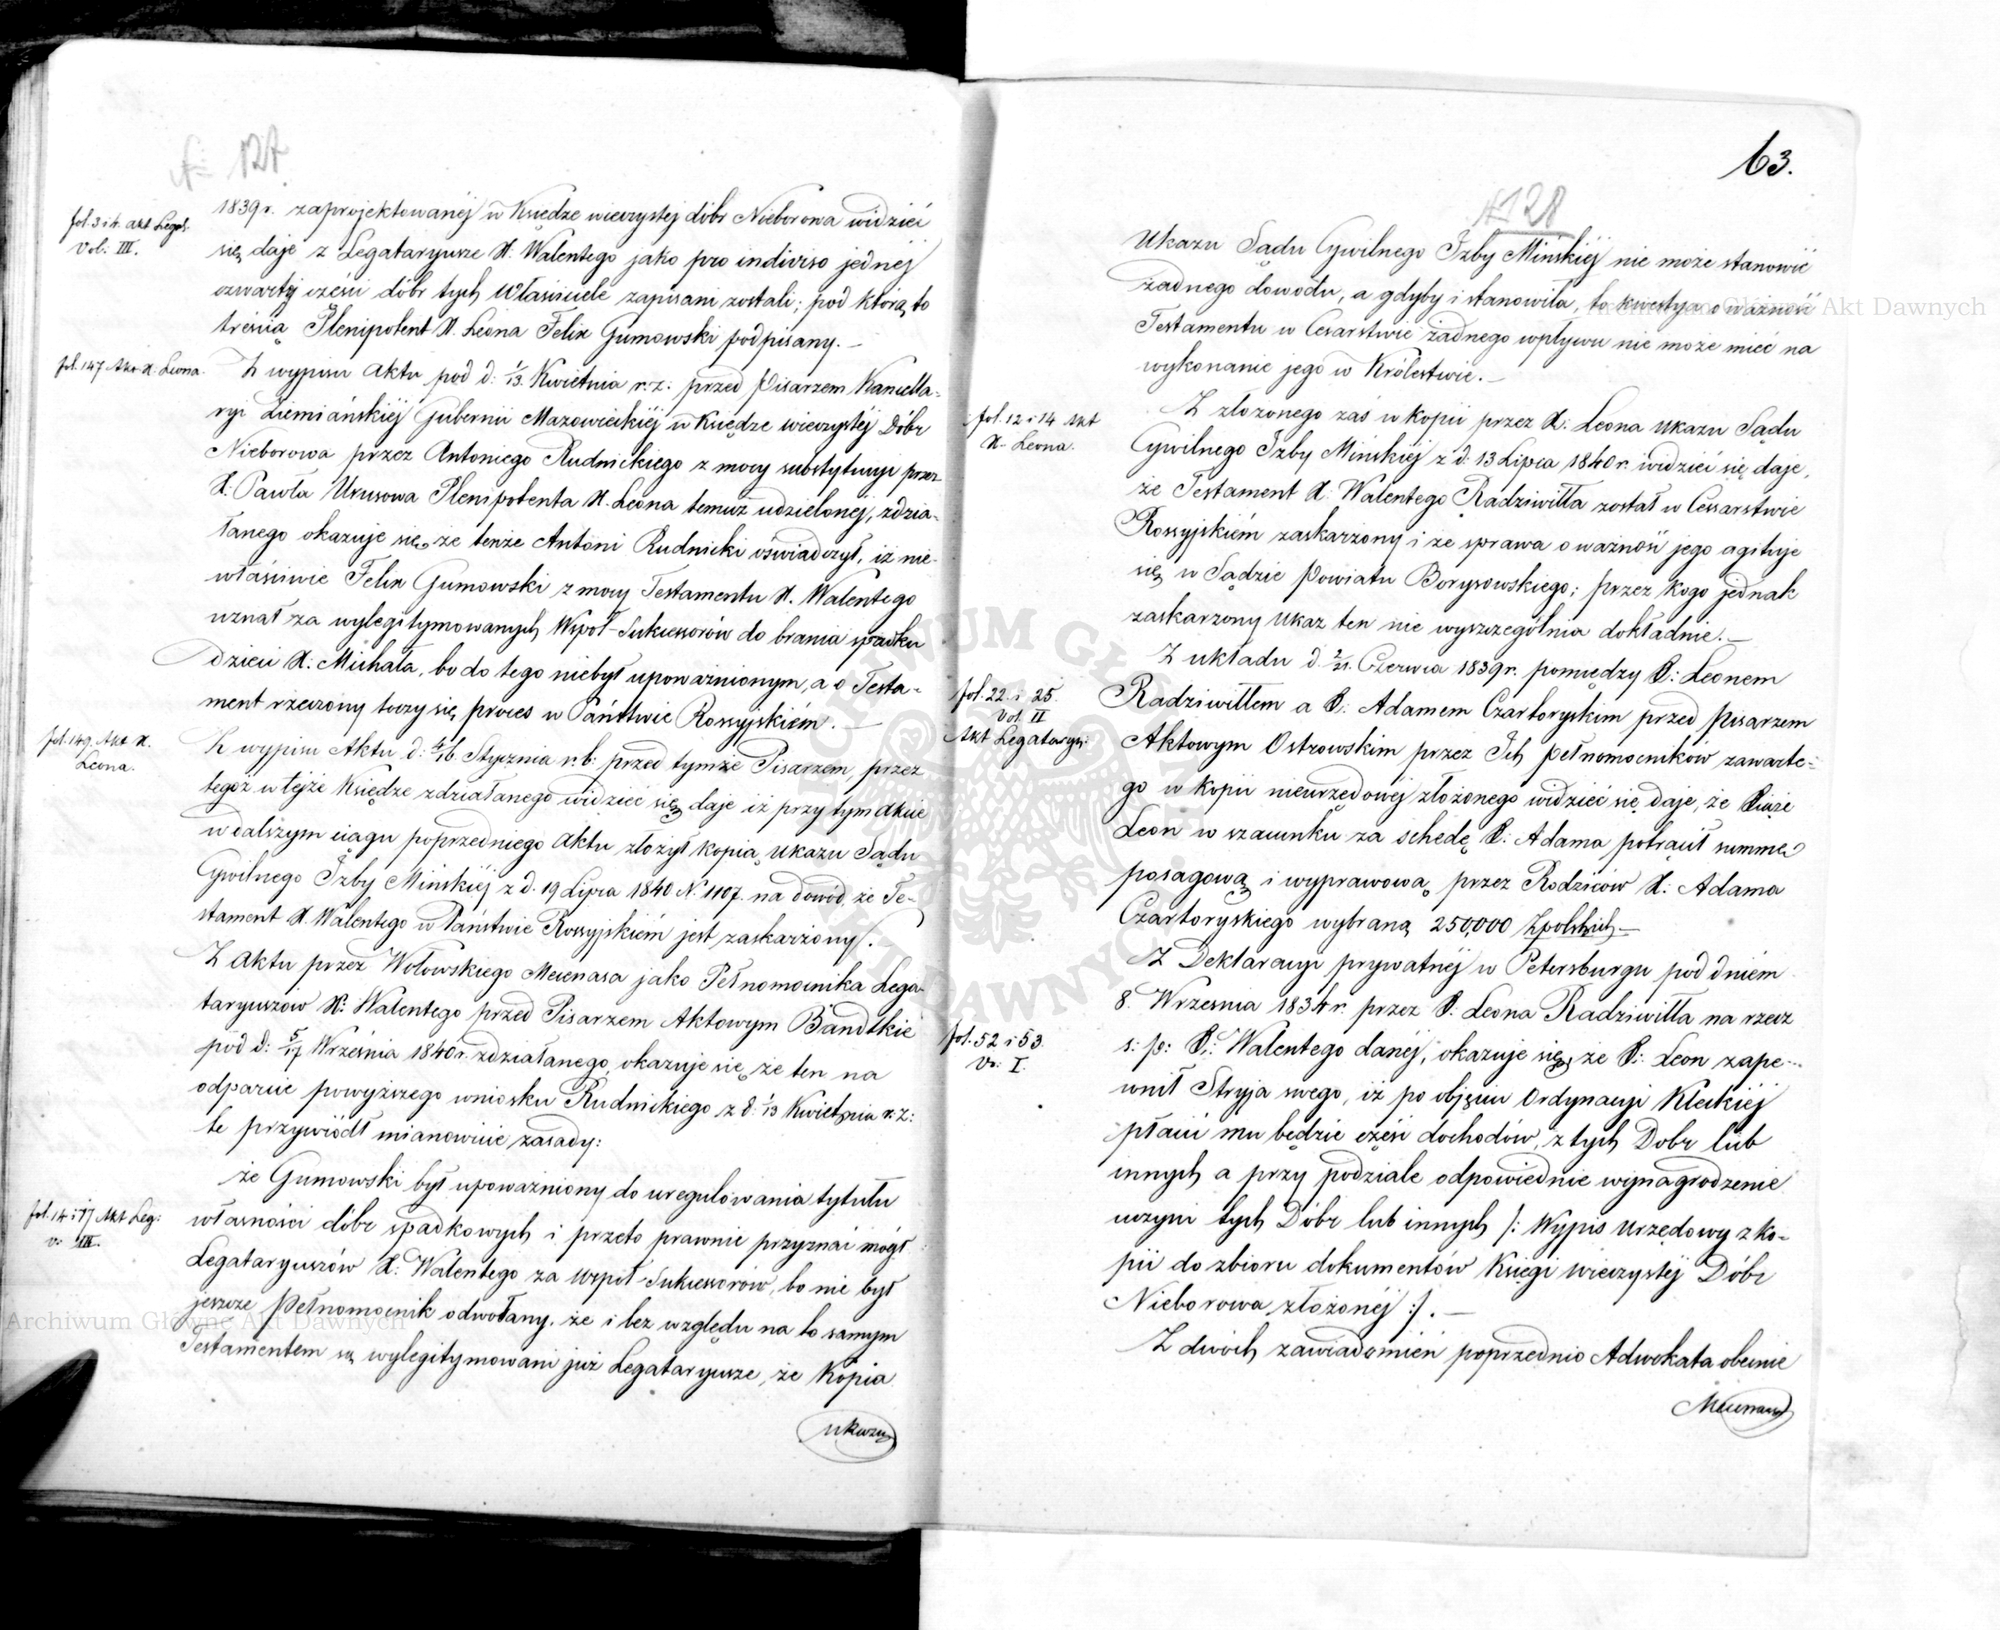 127
fol. 3 i 4. akt Legat.
Vol. III.
1839 r. zaprojektowanéj w Księdze wieczystej dóbr Nieborowa widzieć
się daje z Legataryusze X. Walentego jako pro indiviso jednéj
czwartéj cześci dóbr tych Właściciele zapisani zostali; pod którą to
treścią Plenipotent X. Leona Felix Gumowski podpisany. —
fol. 147 Akt X. Leona.
Z wypisu Aktu pod d: 1/13. Kwietnia r. z: przed Pisarzem Kancella-
ryi Ziemiańskiéj Gubernii Mazowieckiéj w Księdze wieczystéj Dóbr
Nieborowa przez Antoniego Rudnickiego z mocy substytucyi przez
X. Pawła Urusowa Plenipotenta X. Leona temuż udzielonej, zdzia-
łanego okazuje się, że tenże Antoni Rudnicki oświadczył, iż nie-
właściwie Felix Gumowski z mocy Testamentu X. Walentego
uznał za wylegitymowanych Współ-Sukcessorów do brania spadku
dzieci X: Michała, bo do tego niebył upoważnionym, a o Testa-
ment rzeczony toczy się proces w Państwie Rossyjskiém. —
fol. 149. Akt X.
Leona.
Z wypisu Aktu d: 4/16. Stycznia r. b: przed tymże Pisarzem, przez
tegoż w tejże Księdze zdziałanego widzieć się daje iż przy tym akcie
w dalszym ciągu poprzedniego Aktu złożył kopią Ukazu Sądu
Cywilnego Izby Mińskiéj z d. 19 Lipca 1840 N. 1107. na dowód, że Te-
stament X. Walentego w Państwie Rossyjskiém jest zaskarżony.
Z Aktu przez Wołowskiego Mecenasa jako Pełnomocnika Lega-
taryuszów X: Walentego przed Pisarzem Aktowym Bandtkie
pod d: 5/17 Września 1840 r. zdziałanego, okazuje się, że ten na
odparcie powyższego wniosku Rudnickiego z d. 1/13 Kwietnia r. z:
te przywiódł mianowicie zasady:
fol. 14 i 17 Akt Leg:
v: III.
że Gumowski był upoważniony do uregulowania tytułu
własności dóbr spadkowych i przeto prawnie przyznać mógł
Legataryuszów X: Walentego za Współ-Sukcessorów, bo nie był
jeszcze Pełnomocnik odwołany, że i bez względu na to samym
Testamentem są wylegitymowani już Legataryusze, że Kopia
ukazu
63.
128
Ukazu Sądu Cywilnego Izby Mińskiéj nie może stanowić
żadnego dowodu, a gdyby i stanowiła, to kwestya o ważność
Testamentu w Cesarstwie żadnego wpływu nie może mieć na
wykonanie jego w Królestwie. —
fol. 12 i 14 Akt
X. Leona.
Z złożonego zaś w kopii przez X: Leona Ukazu Sądu
Cywilnego Izby Mińskiéj z d. 13 Lipca 1840 r. widzieć się daje,
że Testament X. Walentego Radziwiłła został w Cesarstwie
Rossyjskiém zaskarżony i że sprawa o ważność jego agituje
się w Sądzie Powiatu Borysowskiego; przez kogo jednak
zaskarzony Ukaz ten nie wyszczególnia dokładnie. —
fol. 22 i 25.
Vol. II
Akt Legatary:
Z układu d. 9/21. Czerwca 1839 r. pomiędzy X: Leonem
Radziwiłłem a X: Adamem Czartoryskim przed Pisarzem
Aktowym Ostrowskim przez Ich Pełnomocników zawarte-
go w kopii nieurzędowéj złożonego widzieć się daje, że Xiąże
Leon w szacunku za schedę X: Adama potrącił summę
posagową i wyprawową przez Rodziców X: Adama
Czartoryskiego wybraną 250,000 Złpolskich —
fol. 52 i 53
V: I.
Z Deklaracyi prywatnéj w Petersburgu pod dniem
8. Września 1834 r. przez X. Leona Radziwiłła na rzecz
s: p: X: Walentego danéj, okazuje się, że X: Leon zape-
wnił Stryja swego, iż po objęciu Ordynacyi Kleckiéj
płacić mu będzie część dochodów z tych Dobr lub
innych a przy podziale odpowiednie wynagrodzenie
uczyni tych Dóbr lub innych /: Wypis Urzędowy z ko-
pii do zbioru dokumentów Księgi wieczystéj Dóbr
Nieborowa złożonéj :/. —
Z dwóch zawiadomień poprzednio Adwokata obecnie
Mecenasa
Archiwum Główne Akt Dawnych
Archiwum Główne Akt Dawnych
ARCHIWUM GŁÓWNE AKT DAWNYCH